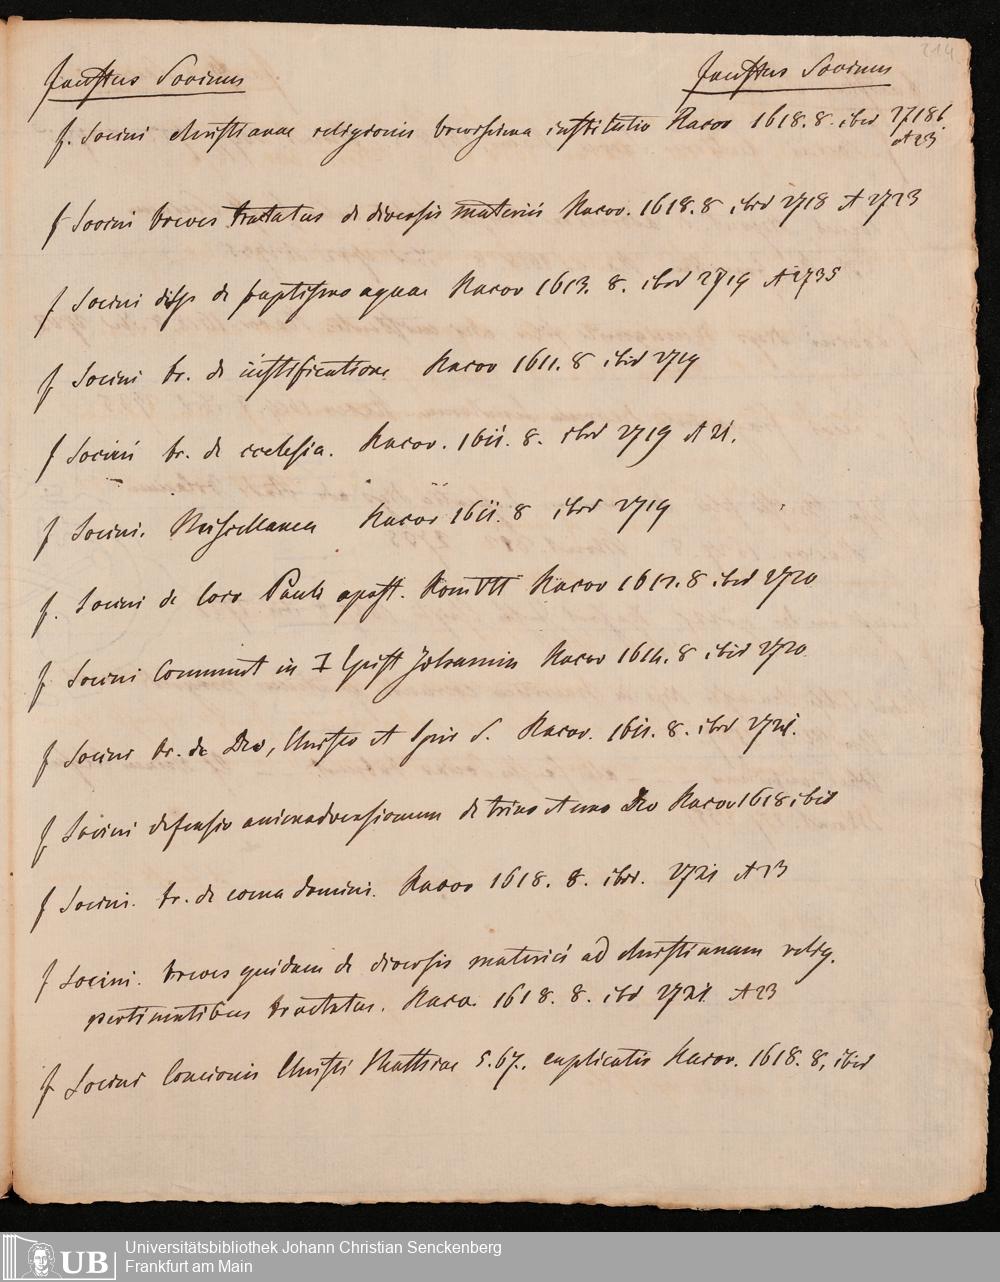 214
Faustus Socinus Faustus Socinus
f. Socini christianae religionis brevissima institutio Racov 1618. 8. ibid 27186.
A 23
f Socini breves tractatus de diversis materiis Racov. 1618. 8 ibid 2718 A 2723
f Socini disp de baptismo aquae Racov 1613. 8. ibid 2719 A 2735
f Socini tr. de iustificatione Racov 1611. 8 ibid 2719
f Socini tr. de ecclesia. Racov. 1611. 8. ibid 2719 A 21.
f Socini. Miscellanea Racov 1611. 8 ibid 2719
f. Socini de loco Pauli apost. Rom VII Racov 1612. 8 ibid 2720
f Socini Comment in I Epist Johannis Racov 1614. 8 ibid 2720
f Socini tr. de Deo, Christo et Spir S. Racov. 1611. 8. ibid 2721.
f Socini defensio animadversionum de trino et uno Deo Racov 1618 ibid
f Socini. tr. de coena domini. Racov 1618. 8. ibid. 2721 A 23
f Socini. breves quidam de diversis materiis ad christianam relig.
pertinentibus tractatus. Raco. 1618. 8. ibd 2721 A 23
f Socini Concionis Christi Matthiae 5. 6 7. explicatio Racov. 1618. 8, ibid
UB
Universitätsbibliothek Johann Christian Senckenberg
Frankfurt am Main